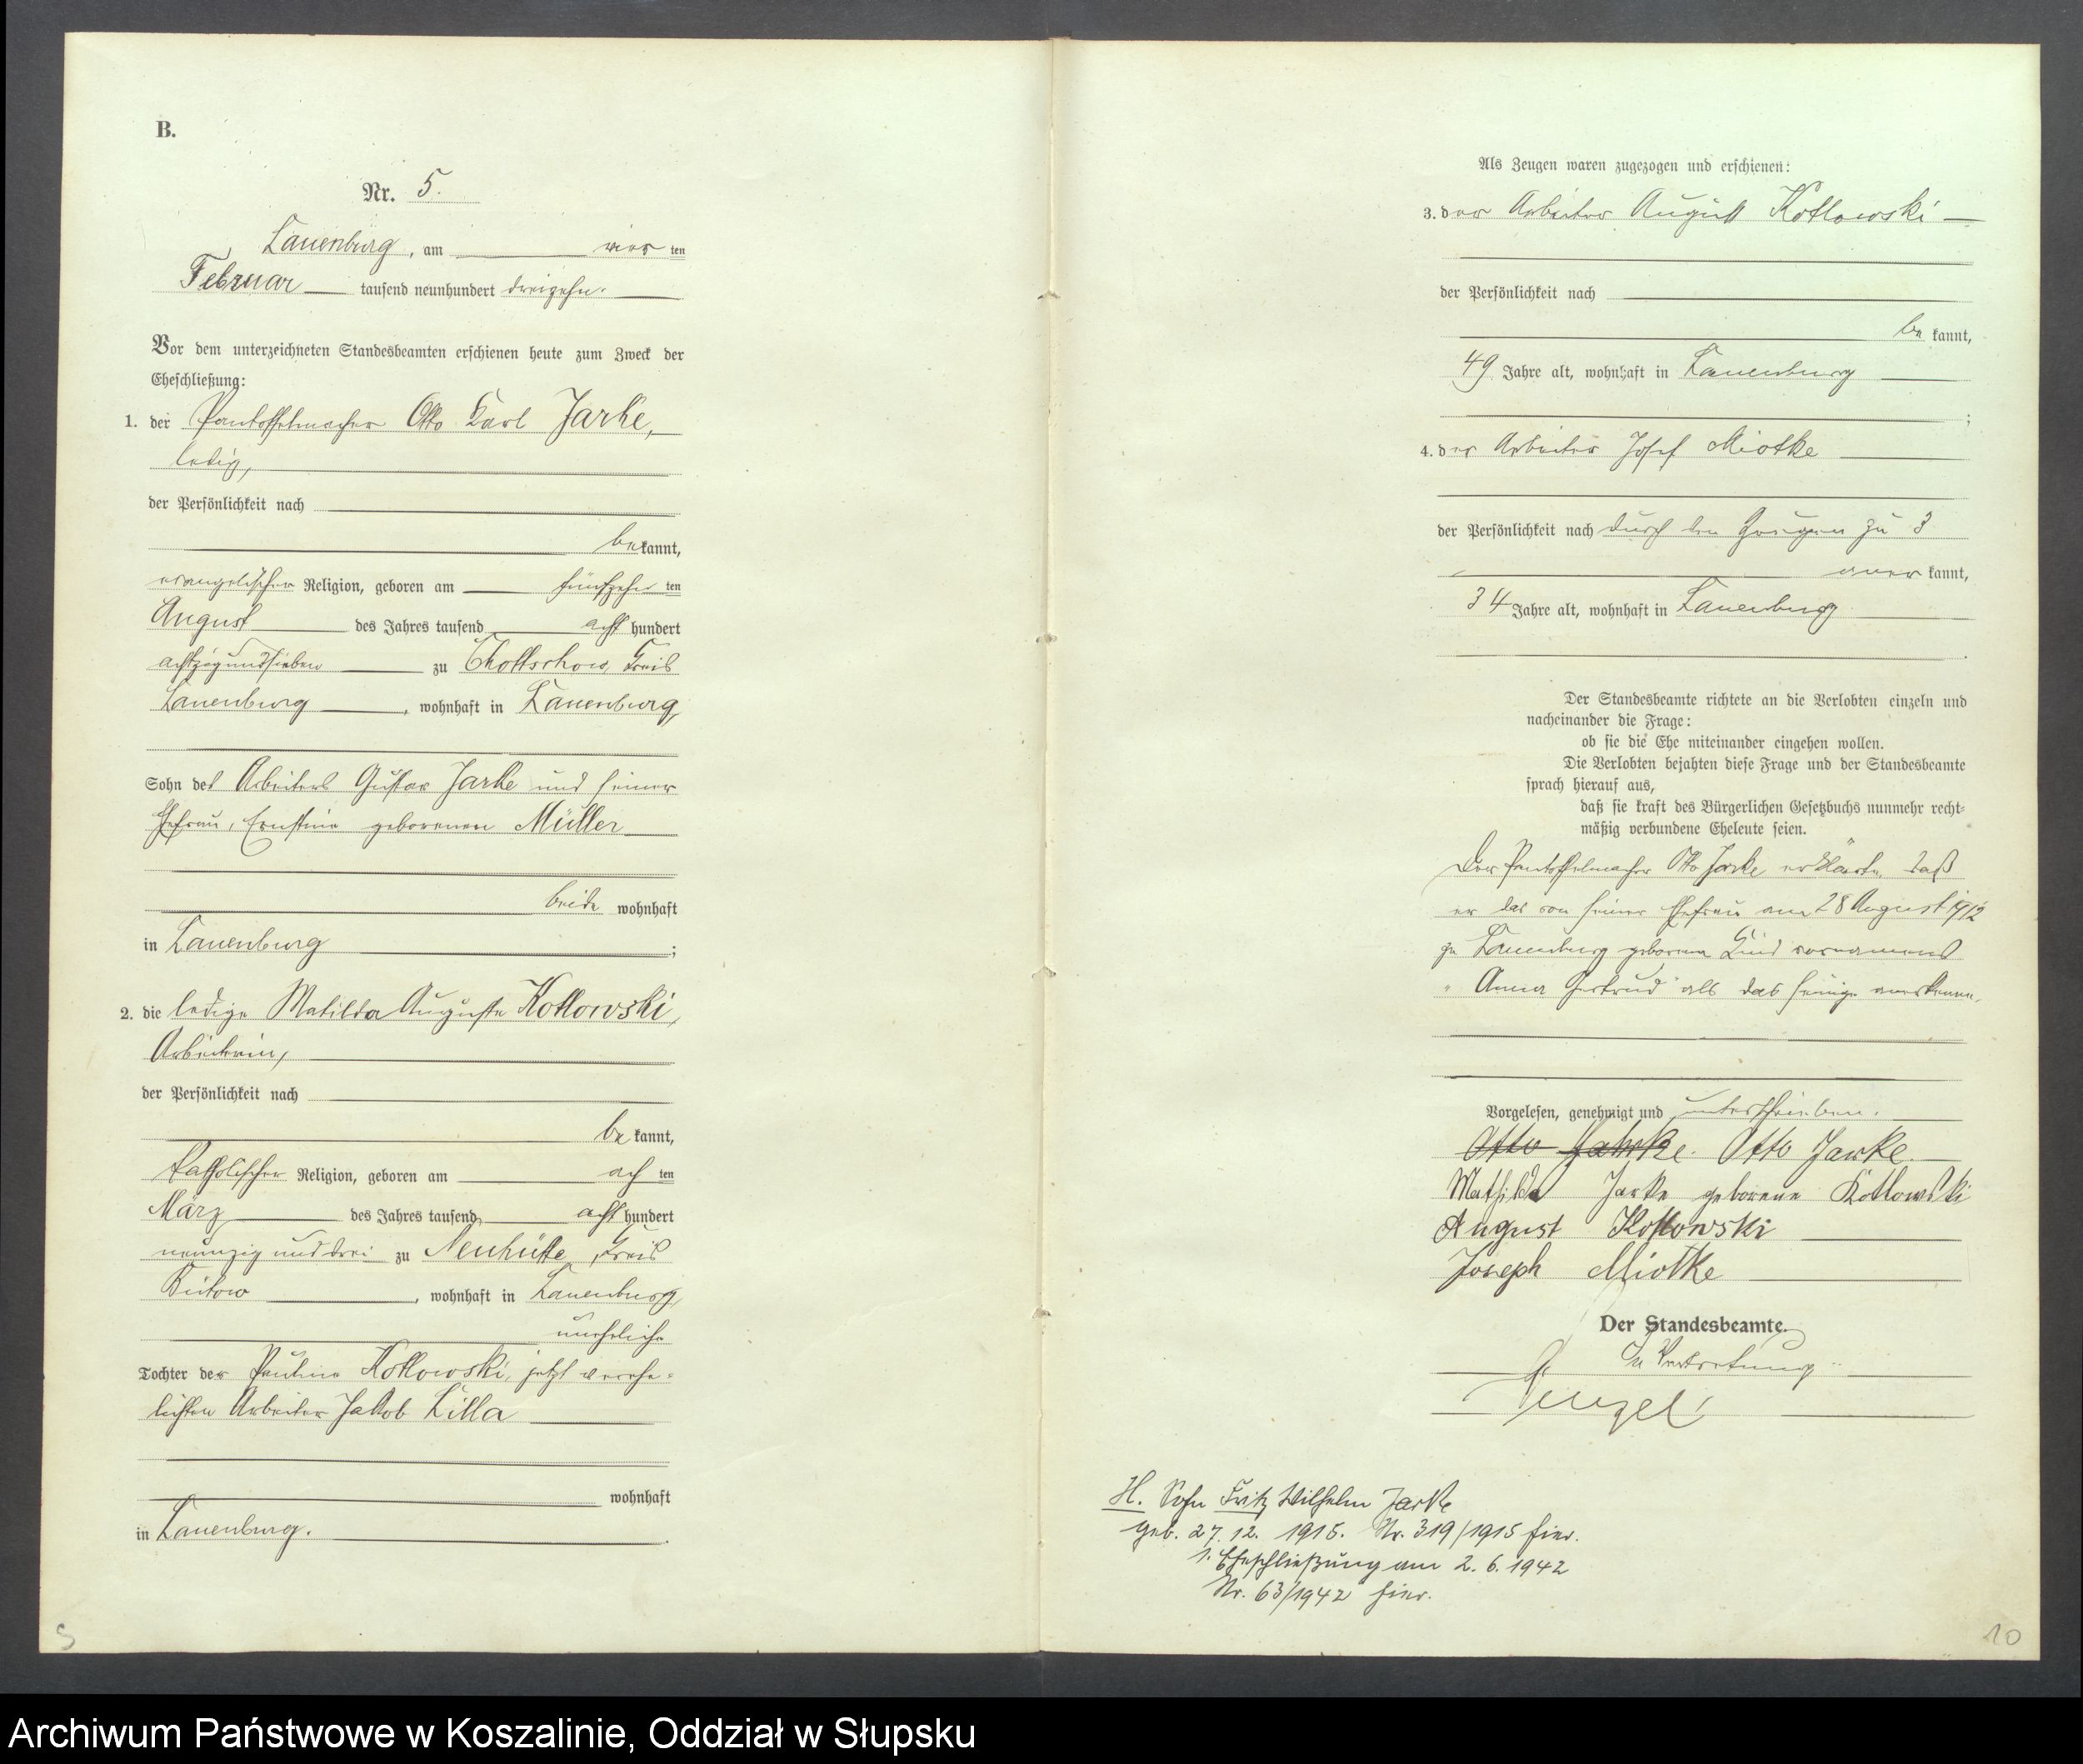 B.
Nr. 5.
Lauenburg, am vier ten
Februar tausend neunhundert dreizehn.
Vor dem unterzeichneten Standesbeamten erschienen heute zum Zweck der
Eheschließung:
1. der Pantoffelmacher Otto Karl Jarke,
ledig,
der Persönlichkeit nach
bekannt,
evangelischer Religion, geboren am fünfzehn ten
August des Jahres tausend acht hundert
achtzigundsieben zu Chottschow, Kreis
Lauenburg, wohnhaft in Lauenburg,
Sohn des Arbeiters Gustav Jarke und seiner
Ehefrau, Ernstine geborenen Müller
beide wohnhaft
in Lauenburg ;
2. die ledige Matilda Auguste Kotlowski,
Arbeiterin,
der Persönlichkeit nach
be kannt,
katholischer Religion, geboren am ach ten
März des Jahres tausend acht hundert
neunzig und drei zu Neuhütte, Kreis
Bütow, wohnhaft in Lauenburg,
uneheliche
Tochter der Pauline Kotlowski, jetzt verehe-
lichten Arbeiter Jakob Lilla
wohnhaft
in Lauenburg.
Als Zeugen waren zugezogen und erschienen:
3. der Arbeiter August Kotlowski
der Persönlichkeit nach
be kannt,
49 Jahre alt, wohnhaft in Lauenburg
;
4. der Arbeiter Josef Miotke
der Persönlichkeit nach durch den Zeugen zu 3
aner kannt,
34 Jahre alt, wohnhaft in Lauenburg
Der Standesbeamte richtete an die Verlobten einzeln und
nacheinander die Frage:
ob sie die Ehe miteinander eingehen wollen.
Die Verlobten bejahten diese Frage und der Standesbeamte
sprach hierauf aus,
daß sie kraft des Bürgerlichen Gesetzbuchs nunmehr recht-
mäßig verbundene Eheleute seien.
Der Pantoffelmacher Otto Jarke erklärte, daß
er das von seiner Ehefrau am 28 August 1912
zu Lauenburg geborene Kind vornamens
"Anna Gertrud" als das seinige anerkenne.
Vorgelesen, genehmigt und unterschrieben.
Otto Jahrke. Otto Jarke.
Mathilda Jarke geborene Kotlowski
August Kotlowski
Joseph Miotke
Der Standesbeamte.
In Vertretung
H. Sohn Fritz Wilhelm Jarke
geb. 27. 12. 1915. Nr. 319/1915 hier.
1. Eheschließung am 2. 6. 1942
Nr. 63/1942 hier.
10
Archiwum Państwowe w Koszalinie, Oddział w Słupsku